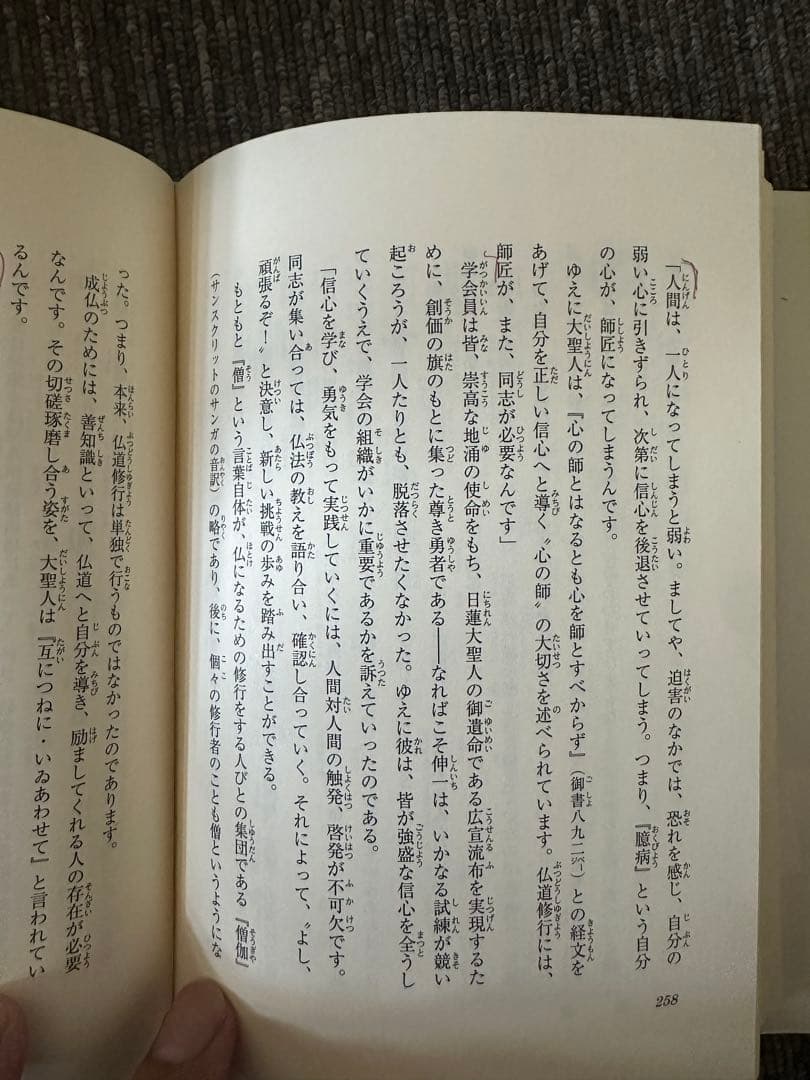 「人間は、一人になってしまうと弱い。ましてや、迫害のなかでは、恐れを感じ、自分の
弱い心に引きずられ、次第に信心を後退させていってしまう。つまり、『臆病』という自分
の心が、師匠になってしまうんです。
ゆえに大聖人は、『心の師とはなるとも心を師とすべからず』（御書八九二㌻）との経文を
あげて、自分を正しい信心へと導く〝心の師〟の大切さを述べられています。仏道修行には、
師匠が、また、同志が必要なんです」
学会員は皆、崇高な地涌の使命をもち、日蓮大聖人の御遺命である広宣流布を実現するた
めに、創価の旗のもとに集った尊き勇者である――なればこそ伸一は、いかなる試練が競い
起ころうが、一人たりとも、脱落させたくなかった。ゆえに彼は、皆が強盛な信心を全うし
ていくうえで、学会の組織がいかに重要であるかを訴えていったのである。
「信心を学び、勇気をもって実践していくには、人間対人間の触発、啓発が不可欠です。
同志が集い合っては、仏法の教えを語り合い、確認し合っていく。それによって、〝よし、
頑張るぞ！〟と決意し、新しい挑戦の歩みを踏み出すことができる。
もともと『僧』という言葉自体が、仏になるための修行をする人びとの集団である『僧伽』
（サンスクリットのサンガの音訳）の略であり、後に、個々の修行者のことも僧というようにな
258
った。つまり、本来、仏道修行は単独で行うものではなかったのであります。
成仏のためには、善知識といって、仏道へと自分を導き、励ましてくれる人の存在が必要
なんです。その切磋琢磨し合う姿を、大聖人は『互につねに・いゐあわせて』と言われてい
るんです。